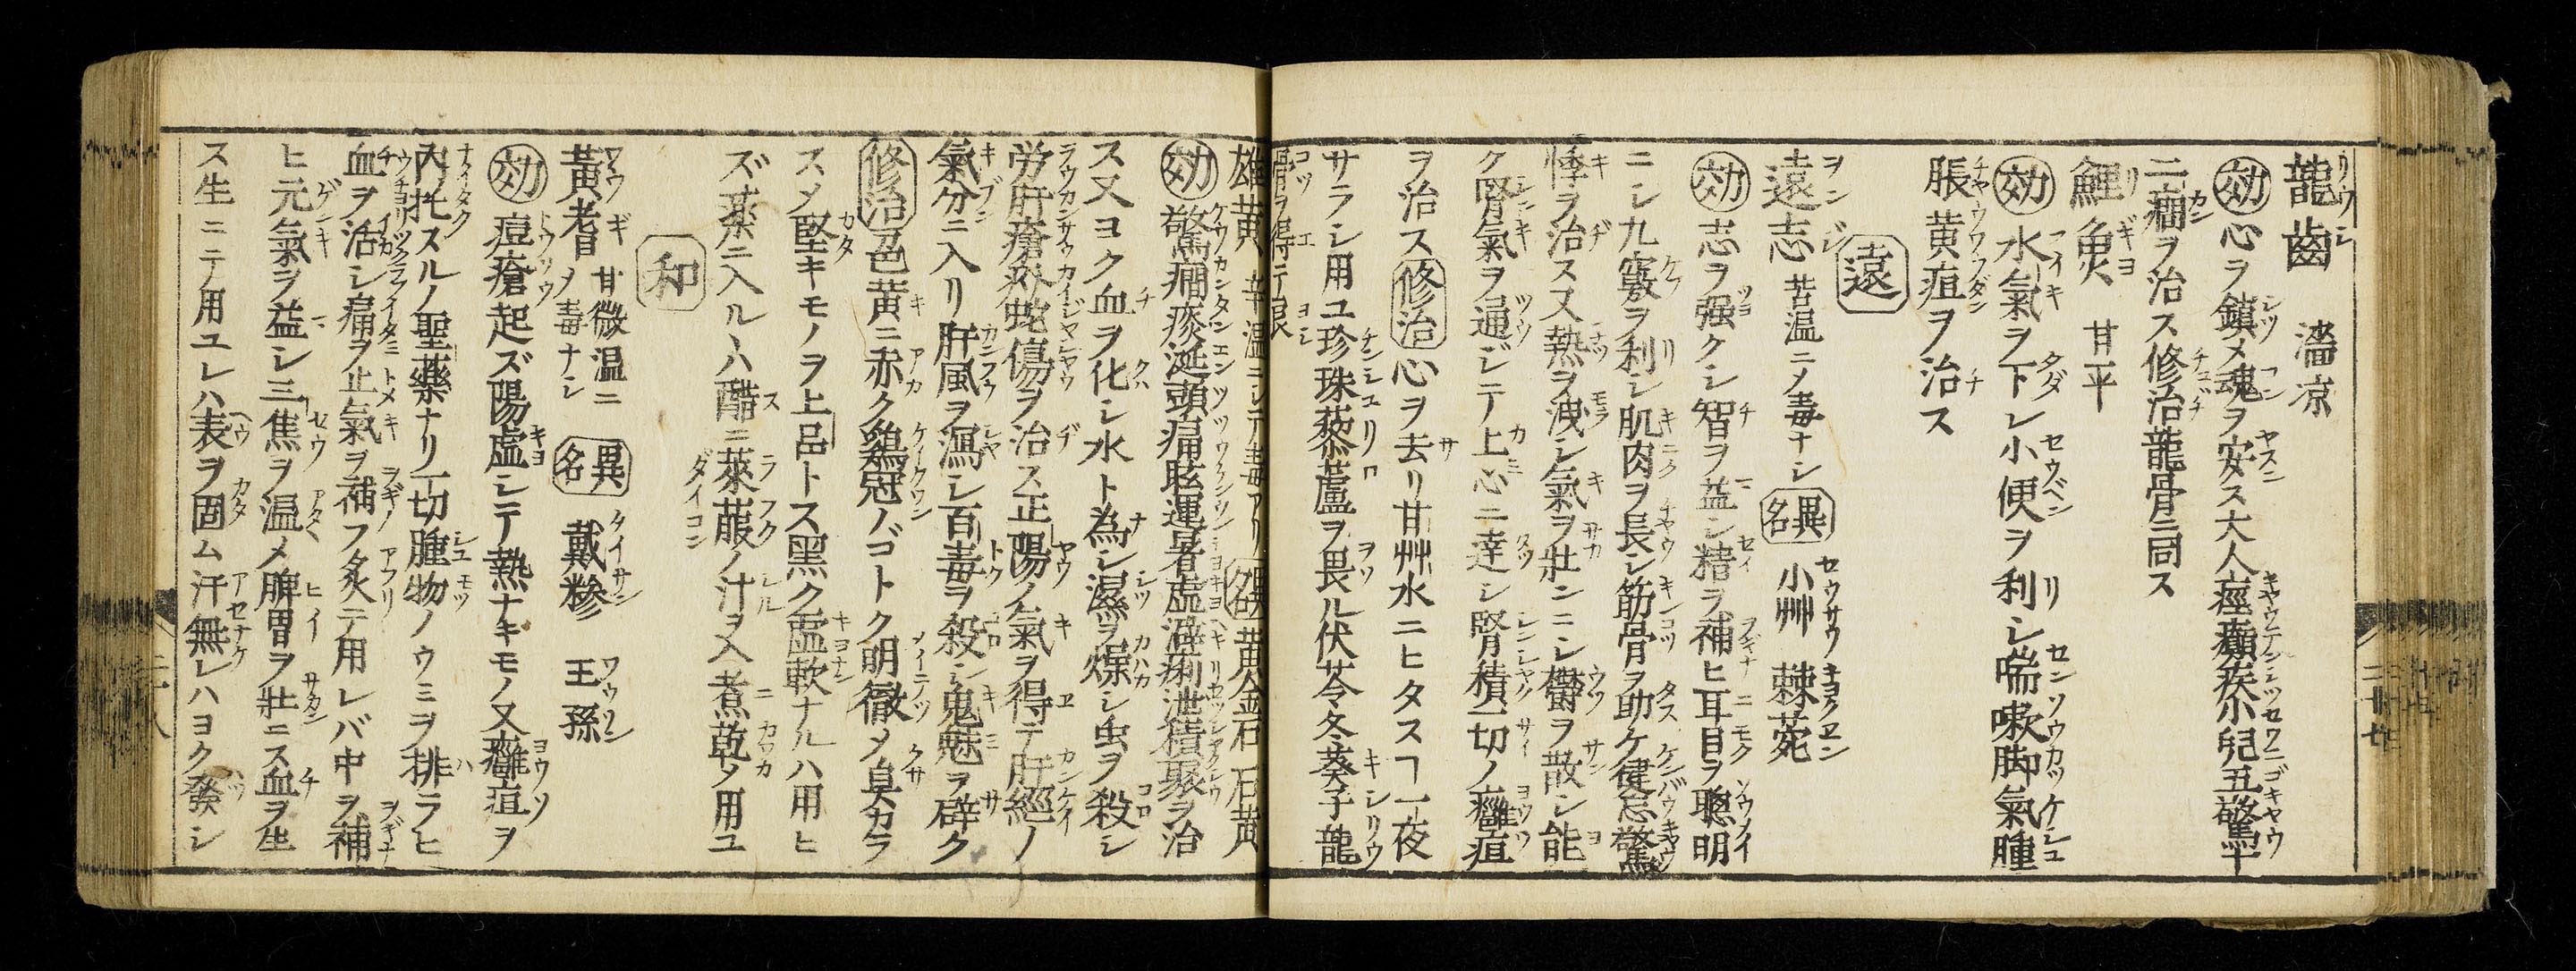 龍齒 濇凉
効 心ヲ鎭メ魂ヲ安ス大人痙癲疾小兒五驚十
二癇ヲ治ス修治龍骨ニ同ス
鯉魚 甘平
効 水氣ヲ下シ小便ヲ利シ喘嗽脚氣腫
脹黄疸ヲ治ス
遠
遠志 苦温ニメ毒ナシ 異名 小艸 棘菀
効 志ヲ强クシ智ヲ益シ精ヲ補ヒ耳目ヲ聰明
ニシ九竅ヲ利シ肌肉ヲ長シ筋骨ヲ助ケ健忘驚
悸ヲ治ス又熱ヲ洩シ氣ヲ壯ンニシ欝ヲ散シ能
ク腎氣ヲ通ジテ上心ニ達シ腎積一切ノ癰疽
ヲ治ス 修治 心ヲ去リ甘艸水ニヒタスヿ一夜
サラシ用ユ珍珠藜蘆ヲ畏ル伏苓冬葵子龍
骨ヲ得テ良
雄黄 辛温ニシテ毒アリ 異名 黄金石 石黄
効 驚癇痰涎頭痛眩運暑虚澼痢泄積聚ヲ治
ス又ヨク血ヲ化シ水ト為シ濕ヲ燥シ虫ヲ殺シ
労肝瘡疥蛇傷ヲ治ス正陽ノ氣ヲ得テ肝經ノ
氣分ニ入リ肝風ヲ瀉シ百毒ヲ殺シ鬼魅ヲ辟ク
修治 色黄ニ赤ク鷄冠ノゴトク明徹メ臭カラ
ズメ堅キモノヲ上品トス黒ク虚軟ナルハ用ヒ
ズ藥ニ入ルヽハ醋ニ萊菔ノ汁ヲ入煮乾メ用ユ
和
黄耆 甘微温ニメ毒ナシ 異名 戴糝 王孫
効 痘瘡起ズ陽虚シテ熱ナキモノ又癰疽ヲ
内托スルノ聖藥ナリ一切腫物ノウミヲ排ラヒ
血ヲ活シ痛ヲ止氣ヲ補フ炙テ用レバ中ヲ補
ヒ元氣ヲ益シ三焦ヲ温メ脾胃ヲ壯ニス血ヲ生
ス生ニテ用ユレハ表ヲ固ム汗無レハヨク發シ
二十七
二十八